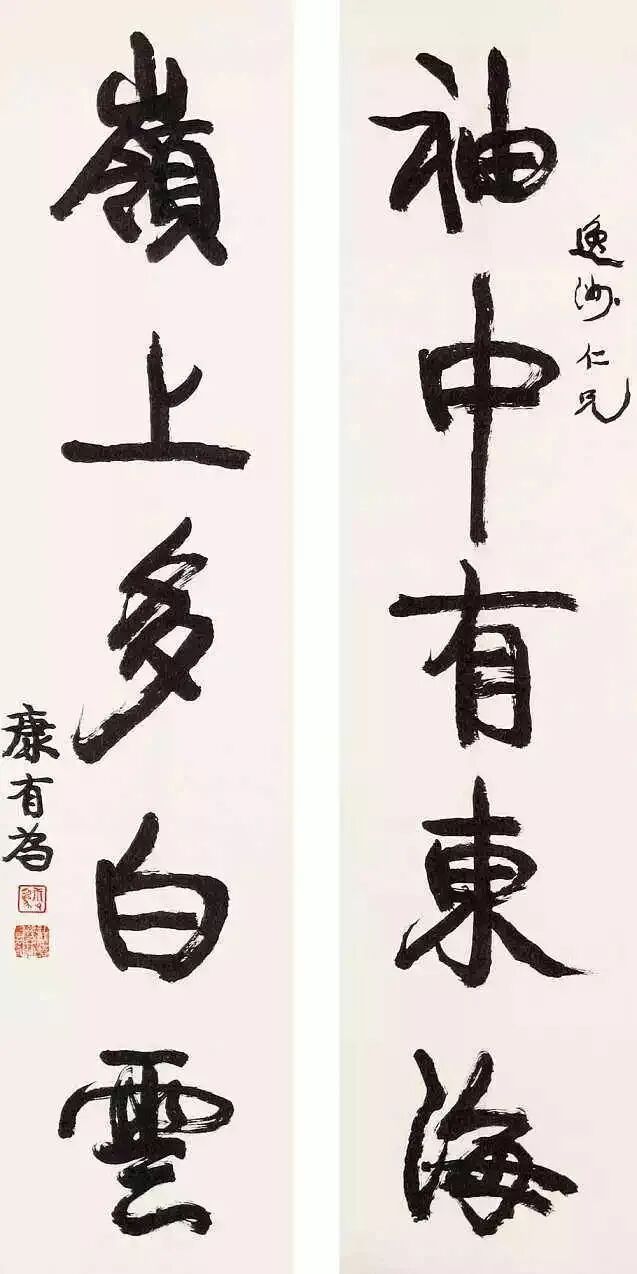 逸洲仁兄
袖中有東海
嶺上多白雲
康有為